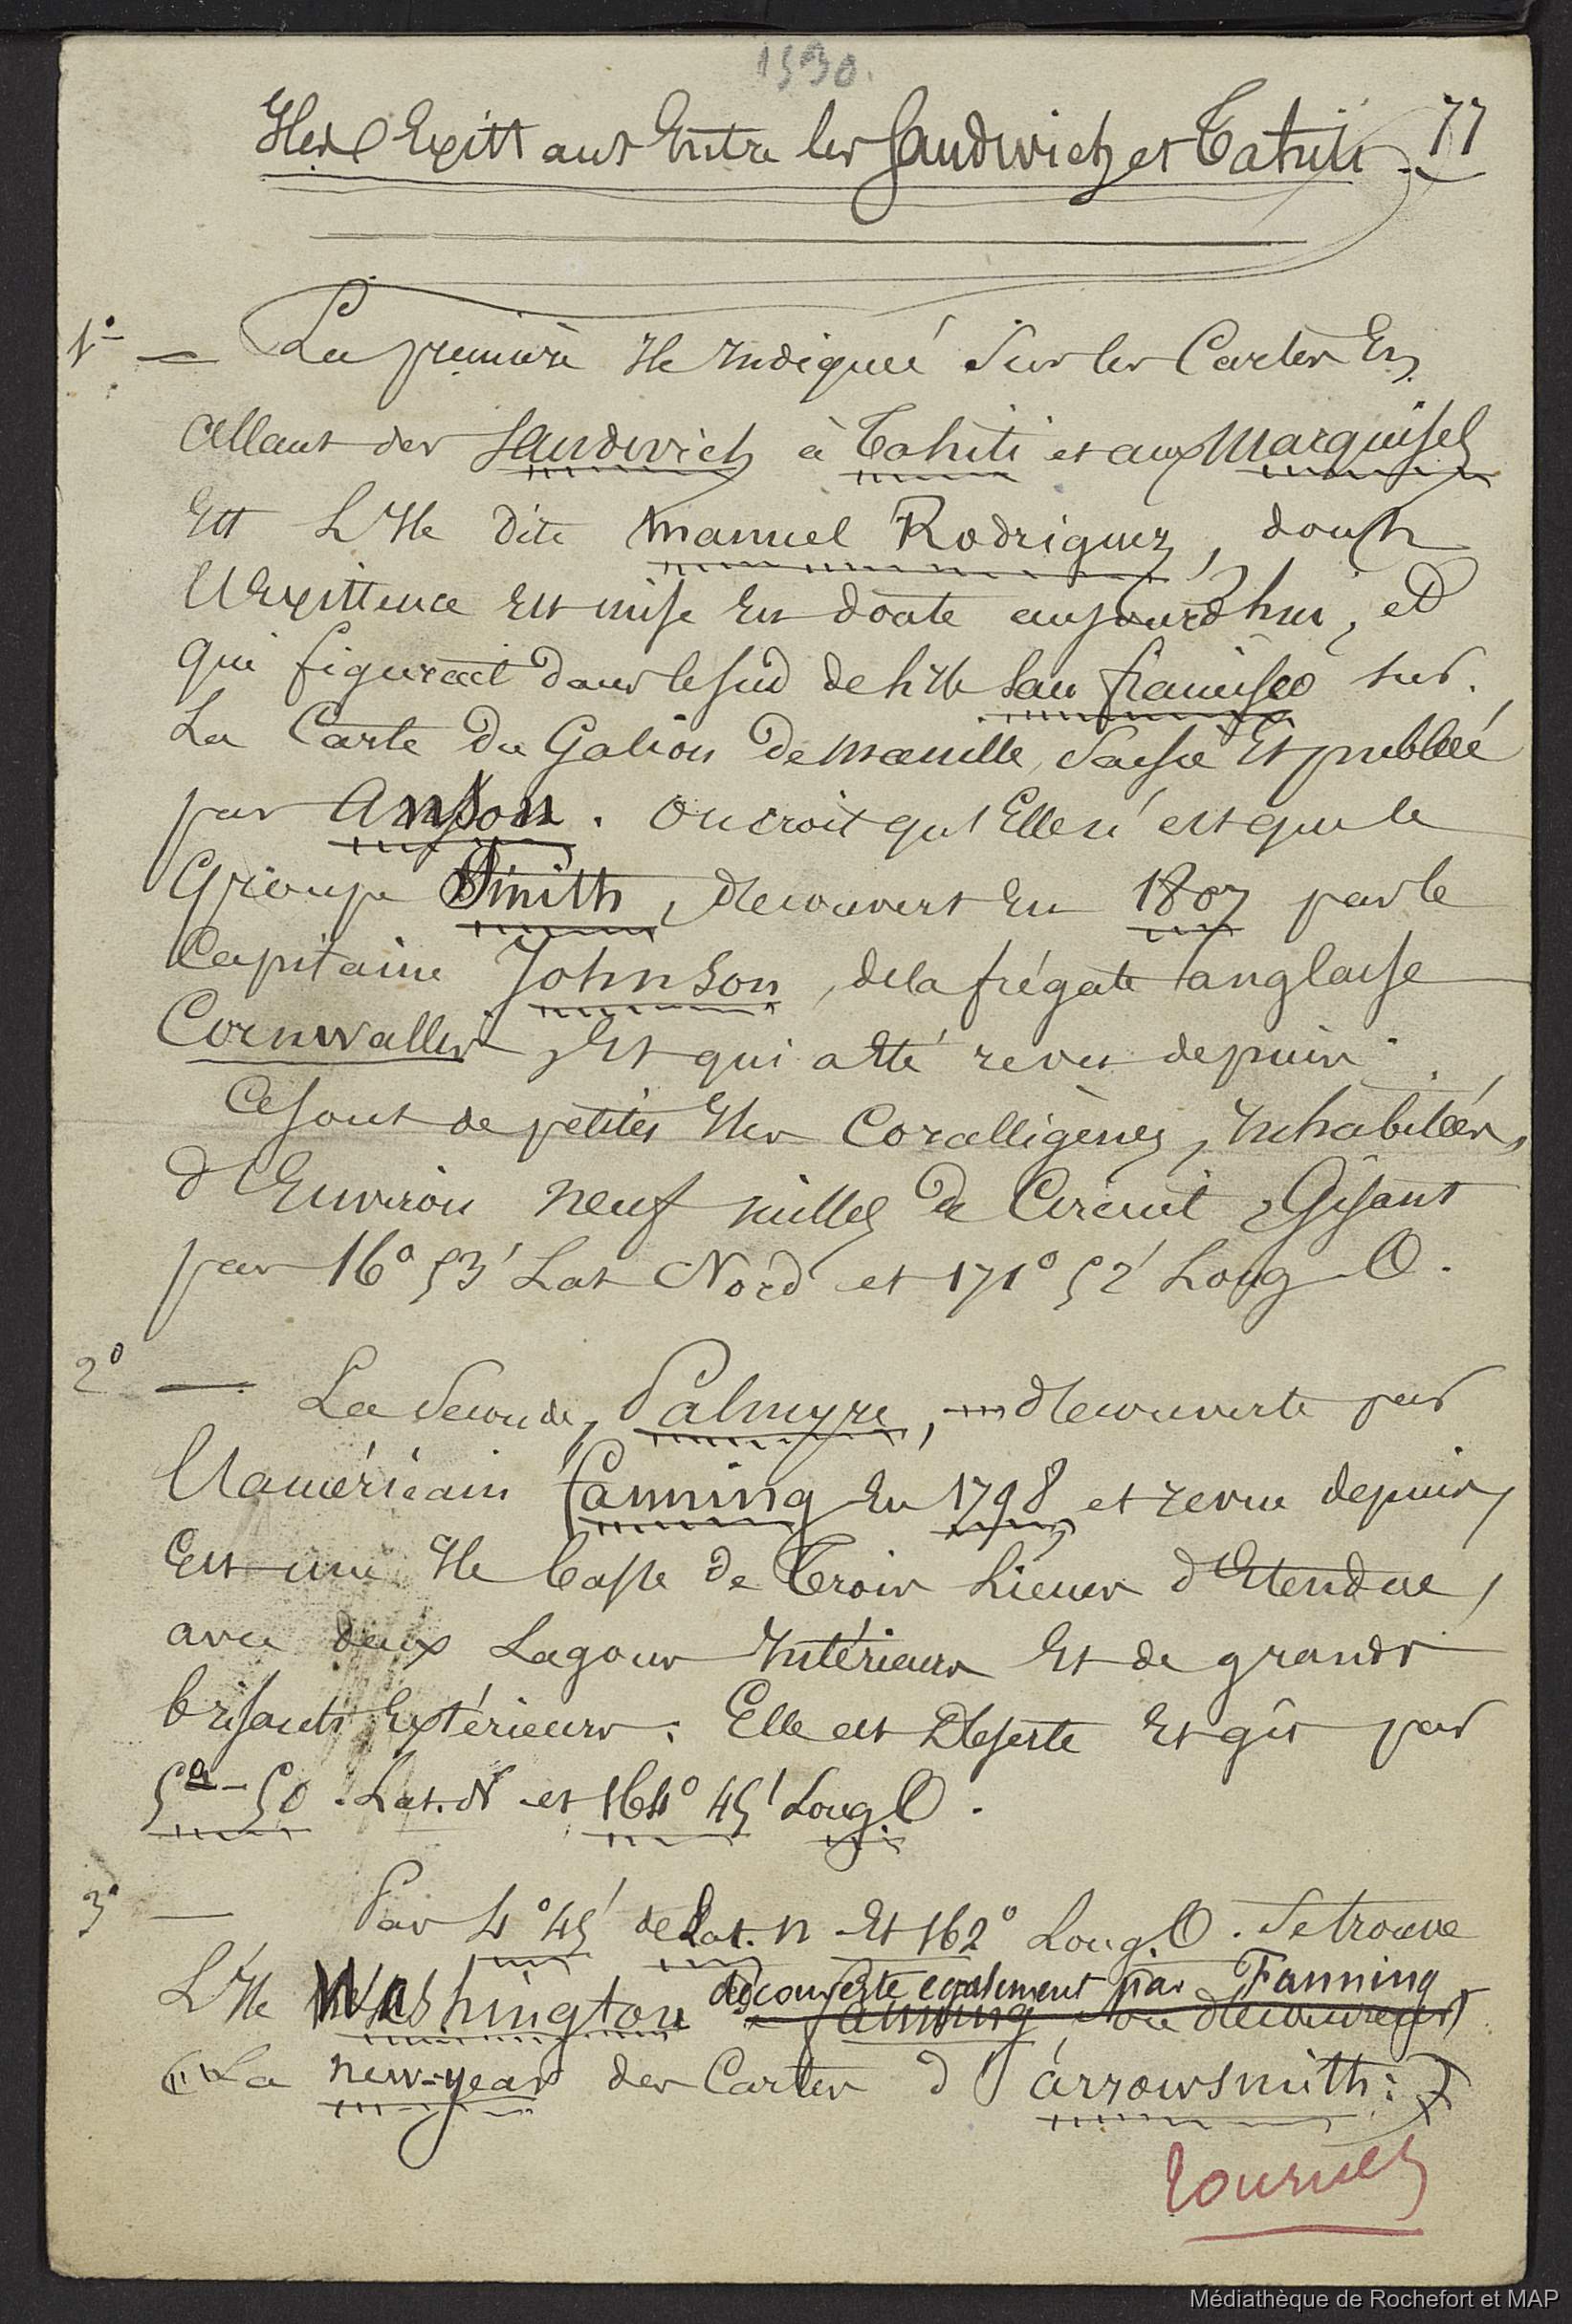 1530.
Iles Existant Entre les Sandwich et Tahiti. 77
1° — La première Ile Indiquée Sur les Cartes En
allant des Sandwich à Tahiti et aux Marquises
Est L'Ile dite Manuel Rodriguez, dont
l'Existence est mise En doute aujourd'hui, et
qui figurait dans le sud de l'Ile San francisco sur
La Carte du Galion de Manille, Saisie Et publiée
par Anson. On croit qu'Elle n'est que le
Groupe Smith, découvert En 1807 par le
Capitaine Johnson, de la frégate anglaise
Cornwallis, Et qui a été revu depuis.
Ce sont de petites Iles Coralligènes, Inhabitées,
d'Environ neuf milles de Circuit, Gisant
par 16° 53' Lat Nord et 171° 52' Long O.
2° — La Seconde, Palmyre, découverte par
l'américain Fanning En 1798 et revue depuis,
Est une Ile basse de Trois Lieues d'Etendue,
avec deux Lagons Intérieurs Et de grands
brisants Extérieurs. Elle est Déserte Et gît par
5°-50 . Lat. N et 164° 45' Long O.
3° — Par 4° 45' de Lat. N Et 162° Long. O. Se trouve
découverte également par Fanning
L'Ile Washington de Fanning, son découvreur
(La new-year des Cartes d'arrowsmith:)
tournez
Médiathèque de Rochefort et MAP